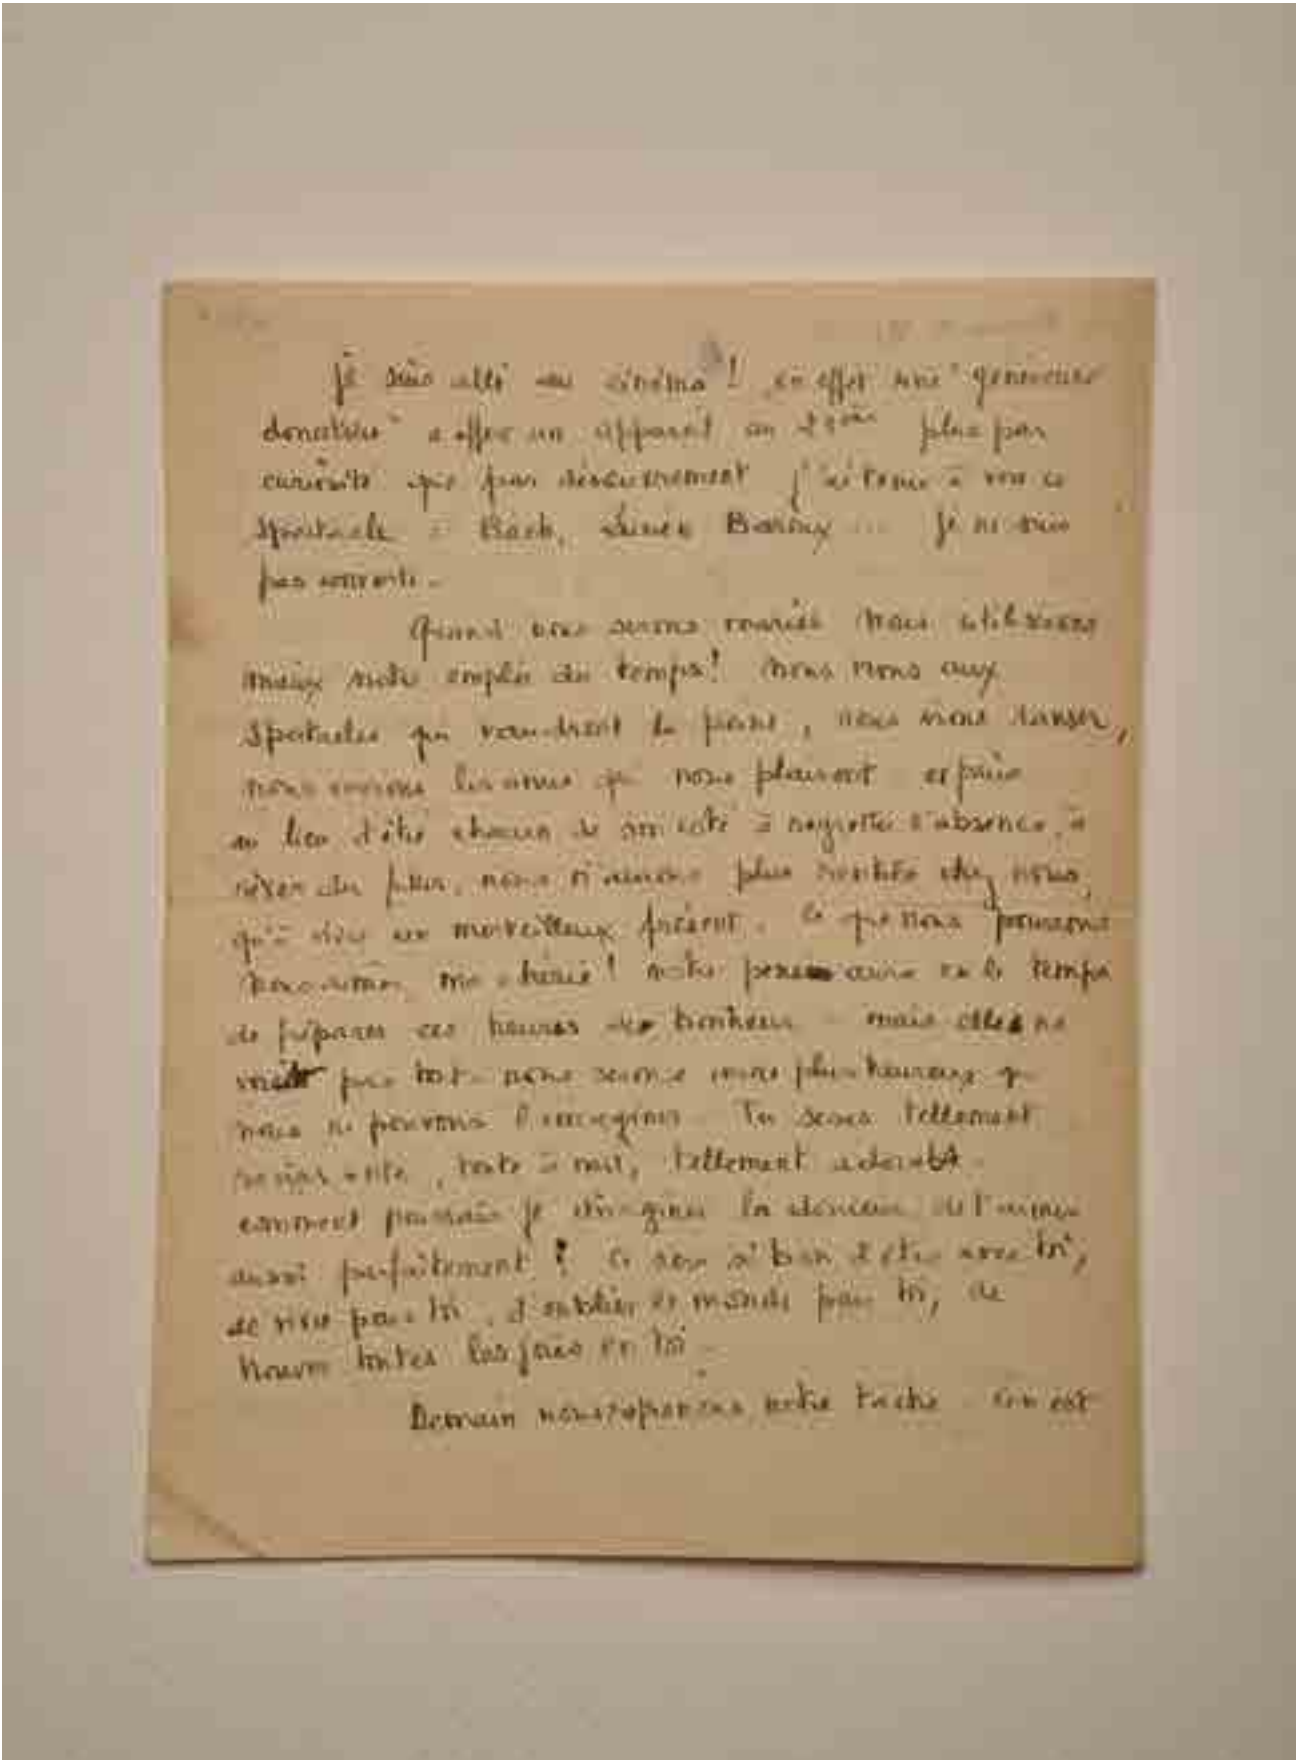 je suis allé au cinéma ! en effet une "généreuse
donatrice" a offert un appareil au plus par
curiosité que par désœuvrement j'ai tenu à voir ce
spectacle : Bach, Lucien Baroux ... je ne suis
pas
Quand nous serons mariés nous utiliserons
mieux notre emploi du temps ! nous irons aux
spectacles qui vaudront la peine, nous irons danser,
nous verrons les amis qui nous plairont et puis
au lieu d'être chacun de son côté à regretter l'absence, à
rêver du futur, nous n'aurons plus rentrés chez nous,
qu'à vivre un merveilleux présent. Ce que nous pourrons
nous aimer, ma chérie ! notre aura eu le temps
de préparer ces heures de bonheur - mais elles ne
pas tout - nous serons encore plus heureux que
nous ne pouvons l'imaginer. Tu seras tellement
, toute à moi, tellement adorable -
comment pourrais je imaginer la douceur de t'aimer
aussi parfaitement ! Ce sera si bon d'être avec toi,
de vivre pour toi, d'oublier le monde pour toi, de
trouver toutes les joies en toi -
Demain nous reprenons notre tâche - c'en est